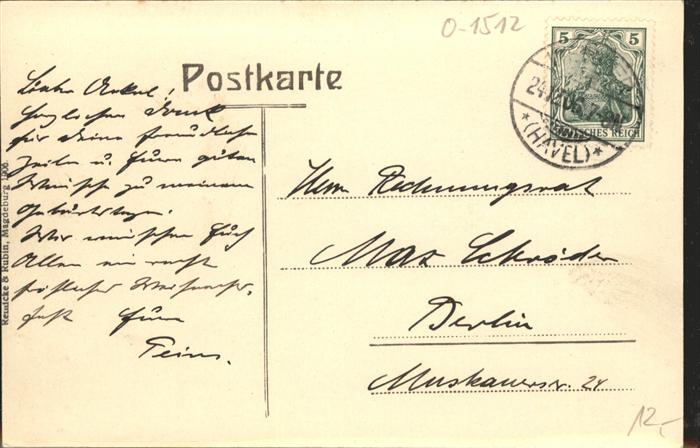 O-1512
Postkarte
5 5
DEUTSCHES REICH
24.12.06.7-8N.
*(HAVEL)*
Lieber Onkel!
herzlichen Dank
für Deine freundlichen
Zeilen u. Euren guten
Wünsche zu meinem
Geburtstage.
Wir wünschen Euch
Allen ein recht
fröhliches Weihnachts-
fest Euer
Herrn Rechnungsrat
Max Schröder
Berlin
Muskauerstr. 24
Reinicke & Rubin, Magdeburg 1906
12,-